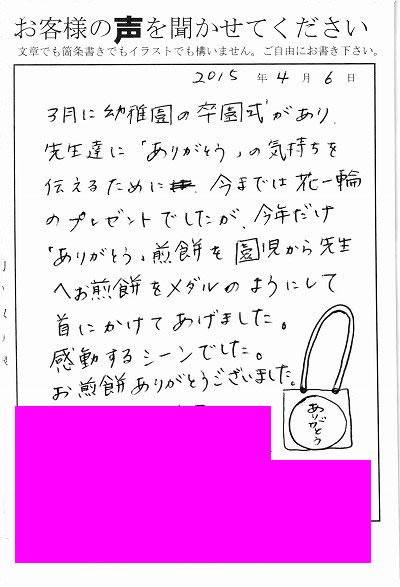 お客様の声を聞かせてください
文章でも箇条書きでもイラストでも構いません。ご自由にお書き下さい。
2015 年 4 月 6 日
3月に幼稚園の卒園式があり、
先生達に「ありがとう」の気持ちを
伝えるために 今までは花一輪
のプレゼントでしたが、今年だけ
「ありがとう」煎餅を園児から先生
へお煎餅をメダルのようにして
首にかけてあげました。
感動するシーンでした。
お煎餅ありがとうございました。
ありがとう